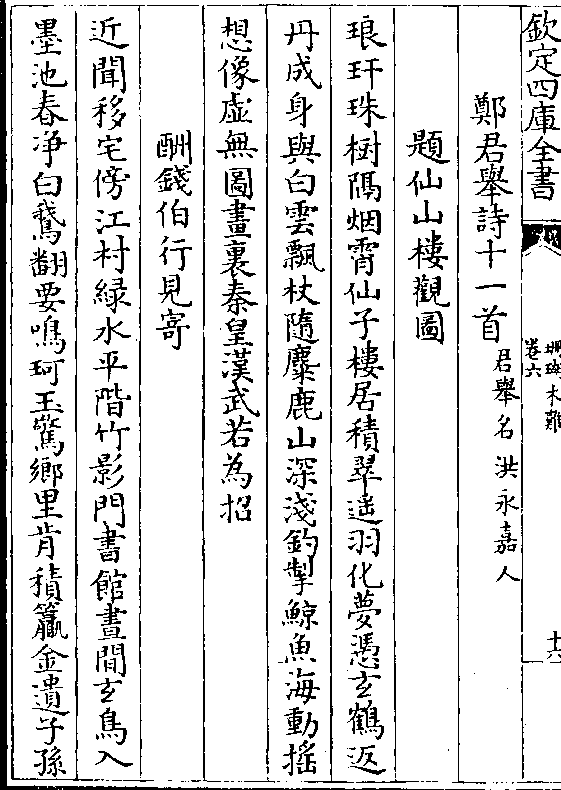 欽定四庫全書
珊瑚木難
卷六
十六
鄭君舉詩十一首君舉名洪永嘉人
題仙山樓觀圖
琅玕珠樹隔烟霄仙子樓居積翠遥羽化夢憑玄鶴返
丹成身與白雲飄杖隨麋鹿山深淺釣掣鯨魚海動搖
想像虚無圖畫裏秦皇漢武若為招
酬錢伯行見寄
近聞移宅傍江村緑水平階竹影門書館晝間玄鳥入
墨池春净白鵞翻要鳴珂玉驚鄉里肯積籯金遺子孫